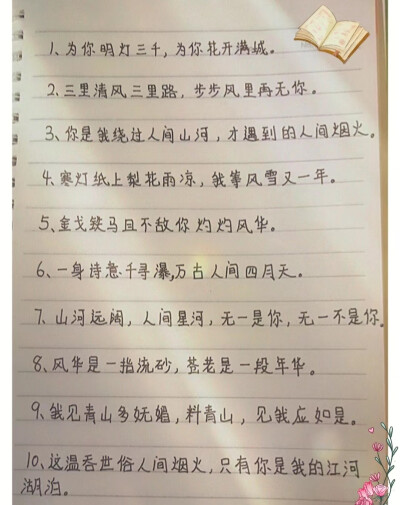 1、为你明灯三千,为你花开满城。
2、三里清风三里路，步步风里再无你。
3、你是我绕过人间山河，才遇到的人间烟火。
4、寒灯纸上梨花雨凉，我等风雪又一年。
5、金戈铁马且不敌你灼灼风华。
6、一身诗意千寻瀑,万古人间四月天。
7、山河远阔，人间星河，无一是你，无一不是你.
8、风华是一指流砂，苍老是一段年华。
9、我见青山多妩媚，料青山，见我应如是。
10、这温吞世俗人间烟火,只有你是我的江河
湖泊。